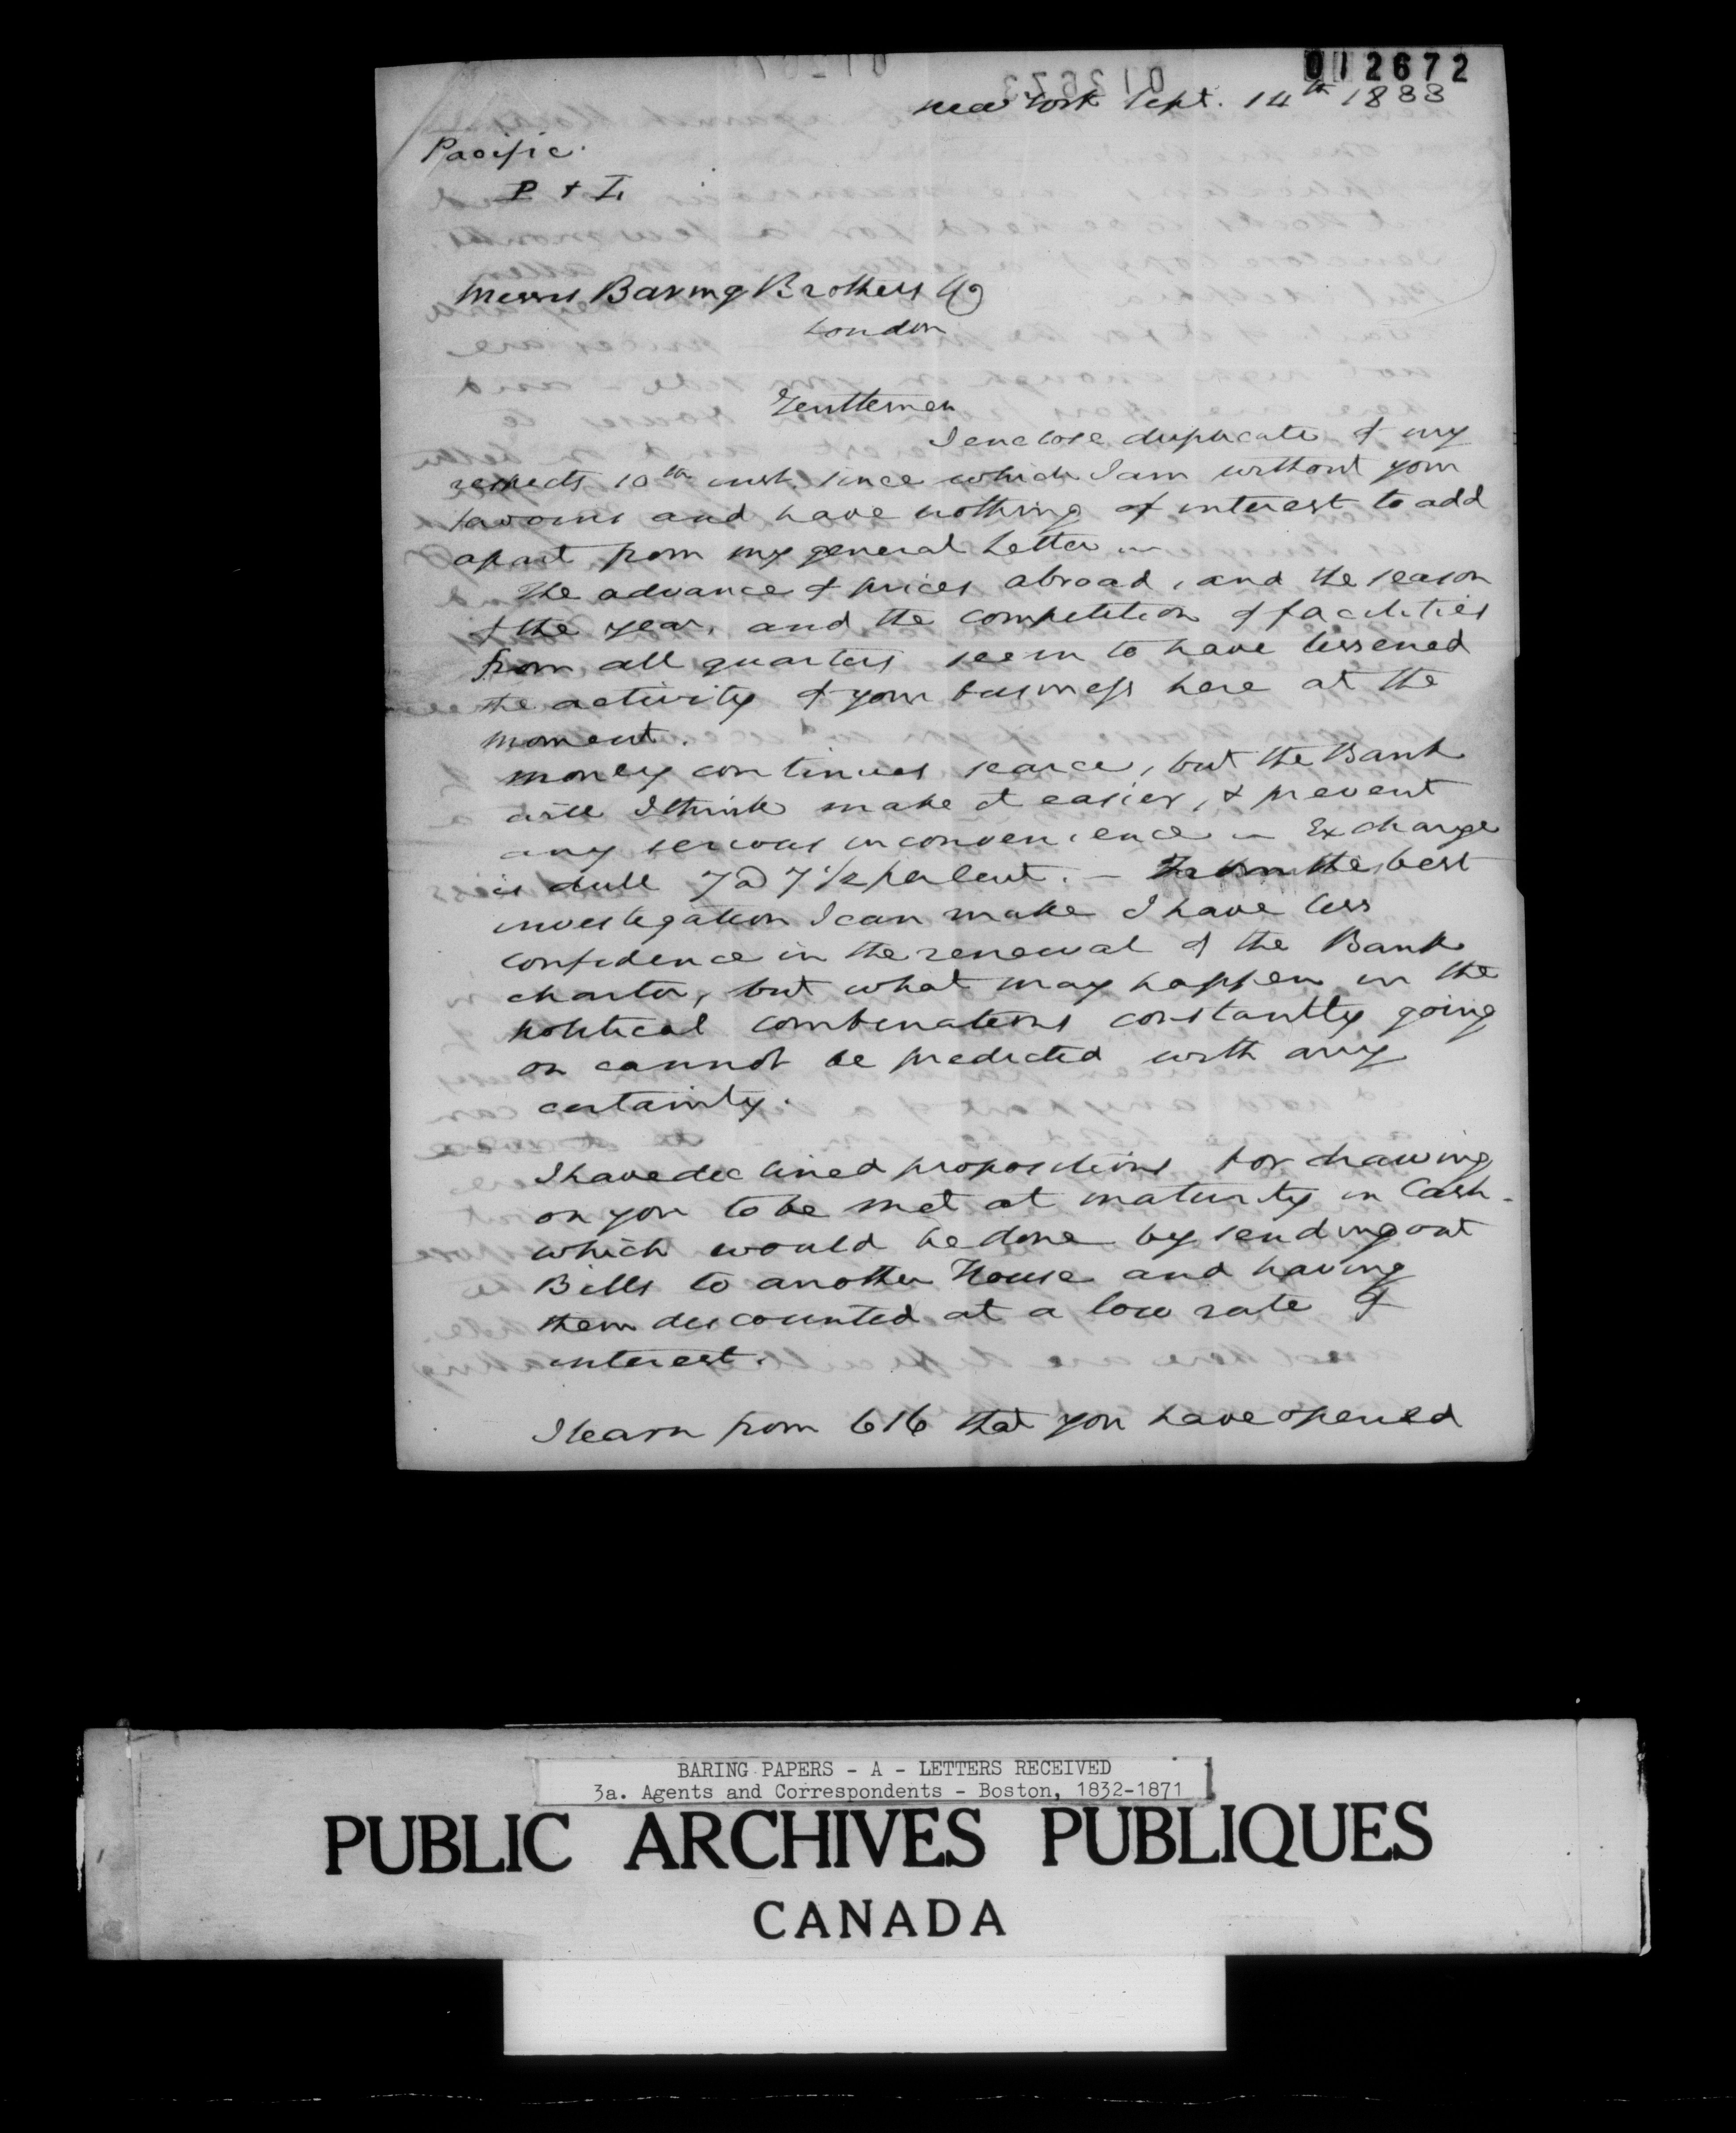 012672
New York Sept. 14th 1833
Pacific.
P + L
Messrs Baring Brothers & Co
London
Gentlemen
I enclose duplicate of my
respects 10th inst. since which I am without your
favours and have nothing of interest to add
apart from my general Letter —
The advance of prices abroad, and the season
of the year, and the competition of facilities
from all quarters seem to have lessened
the activity of your business here at the
moment.
Money continues scarce, but the Bank
will I think make it easier, & prevent
any serious inconvenience — Exchange
is dull 7 a 7 1/2 per Cent. — From the best
investigation I can make I have less
confidence in the renewal of the Bank
charter, but what may happen in the
political combinations constantly going
on cannot be predicted with any
certainty.
I have declined propositions for drawing
on you to be met at maturity in Cash -
which would be done by sending out
Bills to another House and having
them discounted at a low rate of
interest.
I learn from 616 that you have opened
BARING PAPERS - A - LETTERS RECEIVED
3a. Agents and Correspondents - Boston, 1832-1871
PUBLIC ARCHIVES PUBLIQUES
CANADA